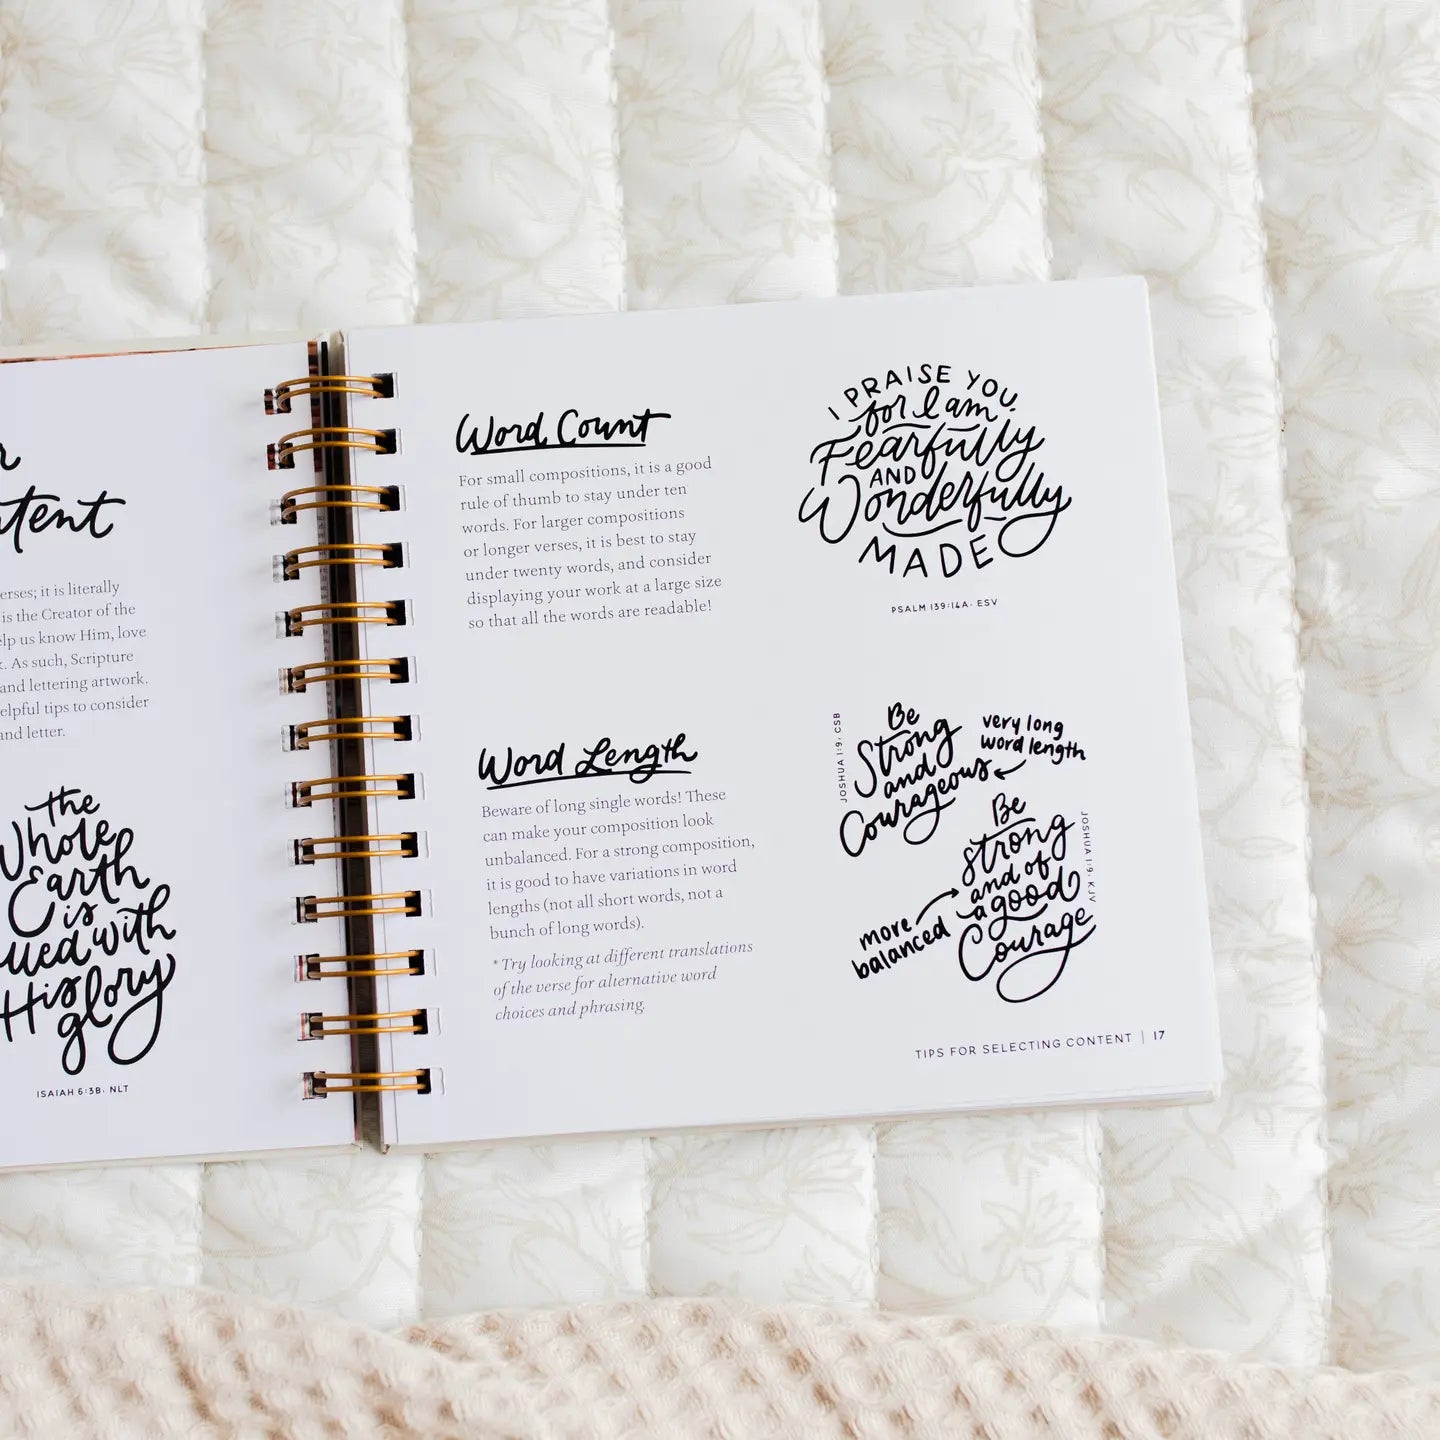 tent
erses; it is literally
is the Creator of the
elp us know Him, love
. As such, Scripture
and lettering artwork.
elpful tips to consider
and letter.
the
Whole
Earth
is
with
His
glory
ISAIAH 6:3B, NLT
Word Count
For small compositions, it is a good
rule of thumb to stay under ten
words. For larger compositions
or longer verses, it is best to stay
under twenty words, and consider
displaying your work at a large size
so that all the words are readable!
I PRAISE YOU,
for I am
Fearfully
AND
Wonderfully
MADE
PSALM 139:14A, ESV
Word Length
Beware of long single words! These
can make your composition look
unbalanced. For a strong composition,
it is good to have variations in word
lengths (not all short words, not a
bunch of long words).
*Try looking at different translations
of the verse for alternative word
choices and phrasing.
JOSHUA 1:9, CSB
Be
Strong
and
Courageous
very long
word length
Be
strong
and of
a good
Courage
JOSHUA 1:9, KJV
more
balanced
TIPS FOR SELECTING CONTENT | 17